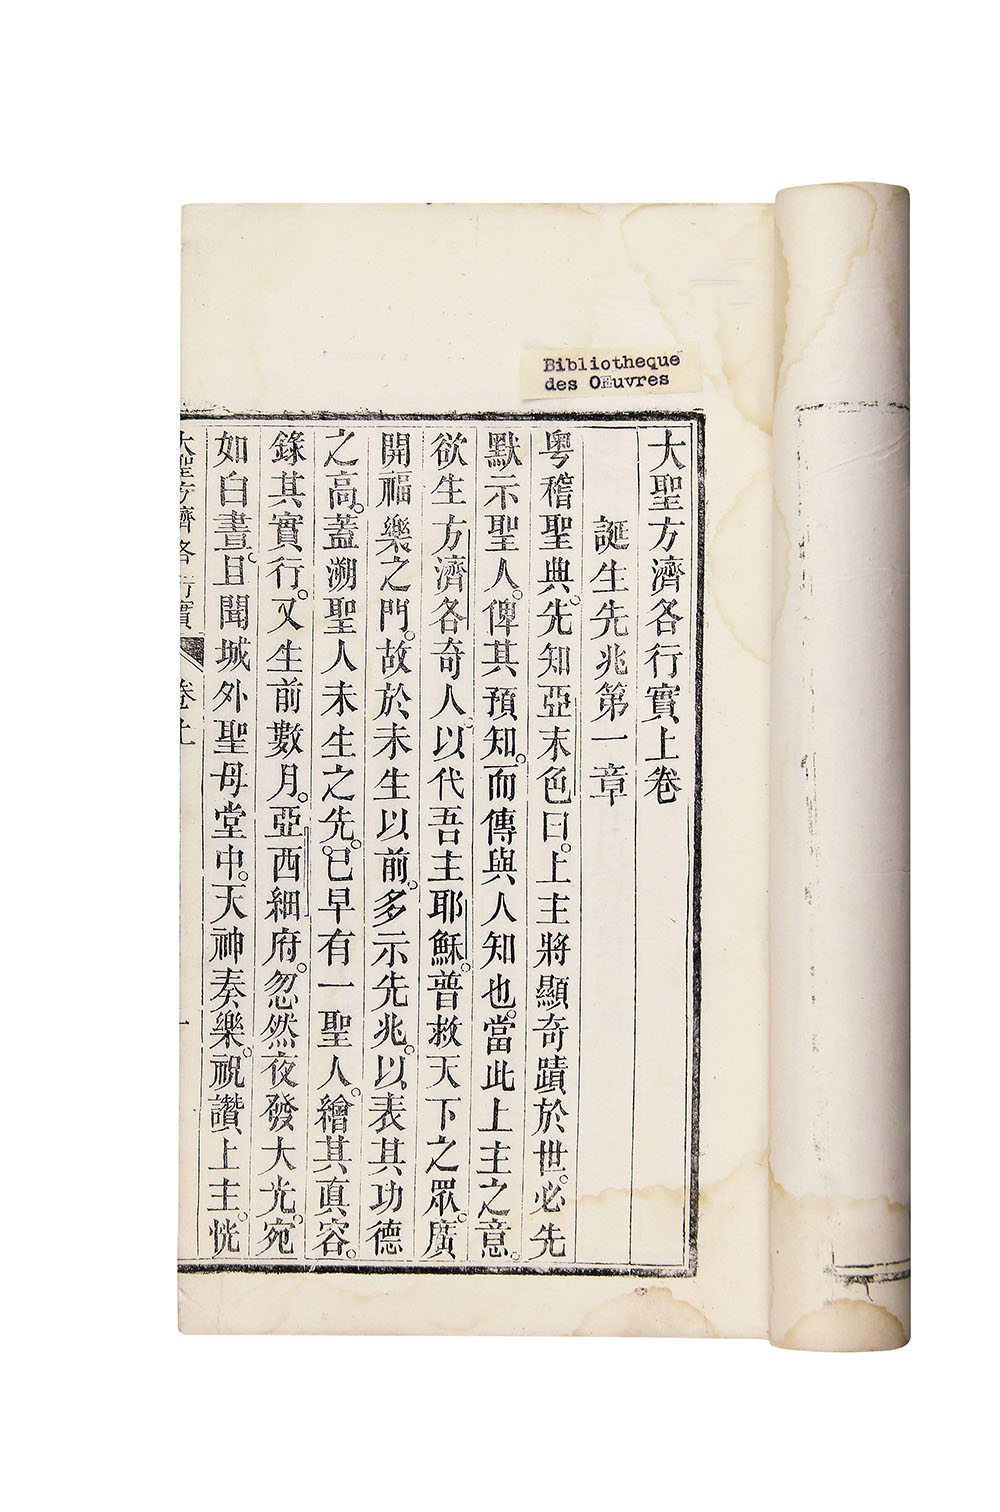 Bibliotheque
des Œuvres
大聖方濟各行實上卷
誕生先兆第一章
粵稽聖典。先知亞末色曰。上主將顯奇蹟於世。必先
默示聖人。俾其預知。而傳與人知也。當此上主之意。
欲生方濟各奇人。以代吾主耶穌。普救天下之眾。廣
開福樂之門。故於未生以前。多示先兆。以表其功德
之高。蓋溯聖人未生之先。已早有一聖人。繪其真容。
錄其實行。又生前數月。亞西細府。忽然夜發大光。宛
如白晝。且聞城外聖母堂中。天神奏樂。祝讚上主。恍
大聖方濟各行實 卷上 一